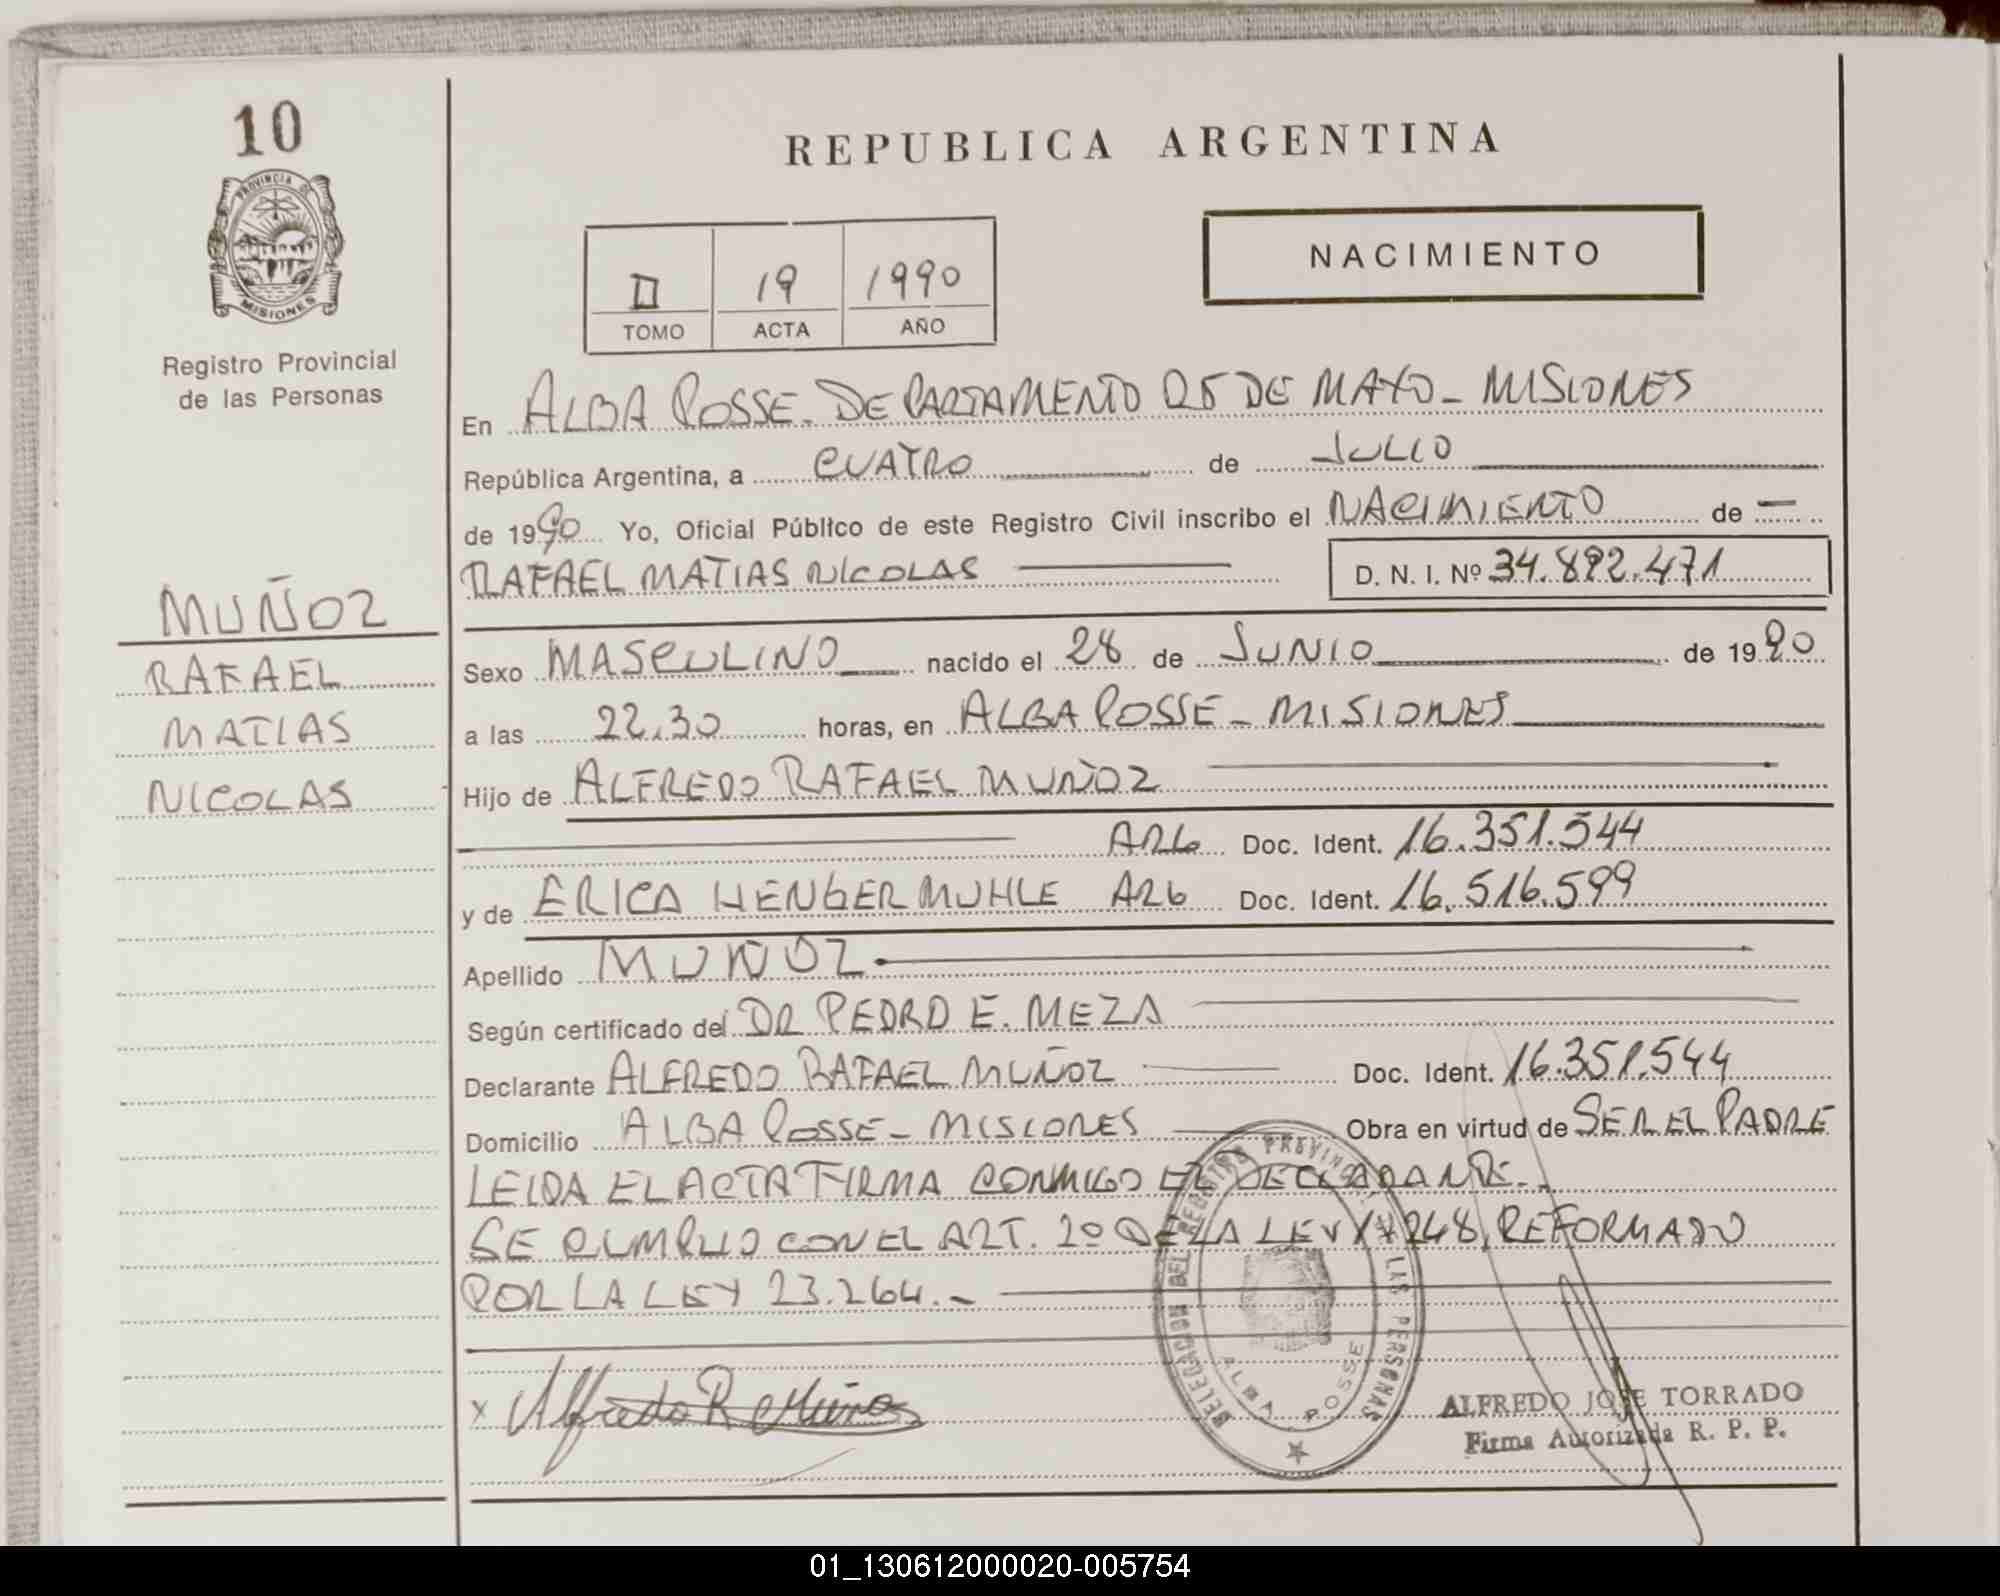 10
REPUBLICA ARGENTINA
PROVINCIA DE
MISIONES
Registro Provincial
de las Personas
NACIMIENTO
II 19 1990
TOMO ACTA AÑO
En ALBA POSSE - DEPARTAMENTO 25 DE MAYO - MISIONES
República Argentina, a CUATRO de JULIO
de 1990 Yo, Oficial Público de este Registro Civil inscribo el NACIMIENTO de —
RAFAEL MATIAS NICOLAS D. N. I. Nº 34.892.471
MUÑOZ
RAFAEL
MATIAS
NICOLAS
Sexo MASCULINO nacido el 28 de JUNIO de 1990
a las 22.30 horas, en ALBA POSSE - MISIONES
Hijo de ALFREDO RAFAEL MUÑOZ
ARG Doc. Ident. 16.351.544
y de ERICA HENGERMUHLE ARG Doc. Ident. 16.516.599
Apellido MUÑOZ
Según certificado del DR PEDRO E. MEZA
Declarante ALFREDO RAFAEL MUÑOZ Doc. Ident. 16.351.544
Domicilio ALBA POSSE - MISIONES Obra en virtud de SER EL PADRE
LEIDA EL ACTA FIRMA CONMIGO EL DECLARANTE.-
SE CUMPLIO CON EL ART. 2º DE LA LEY 17248, REFORMADO
POR LA LEY 23.264.-
DELEGACION DEL REGISTRO PROVINCIAL DE LAS PERSONAS
ALBA POSSE
x Alfredo R Muños
ALFREDO JOSE TORRADO
Firma Autorizada R. P. P.
01_130612000020-005754